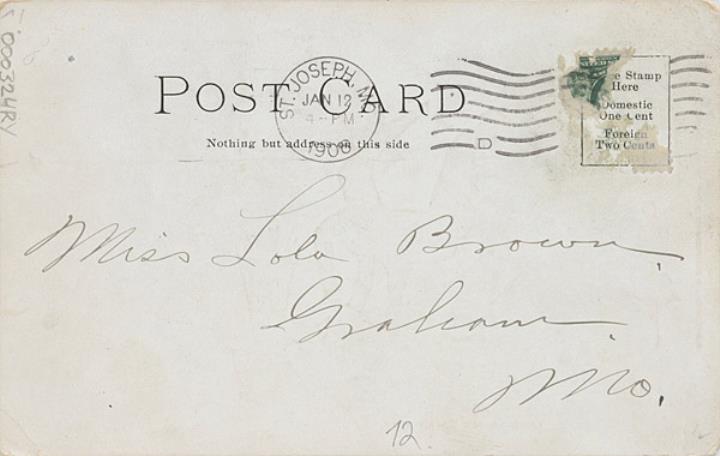 000324RY
POST CARD
ST. JOSEPH, MO.
JAN 12
4 - PM
1906
Nothing but address on this side
D
e Stamp
Here
Domestic
One Cent
Foreign
Two Cents
Miss Lola Brown,
Graham
Mo.
12.